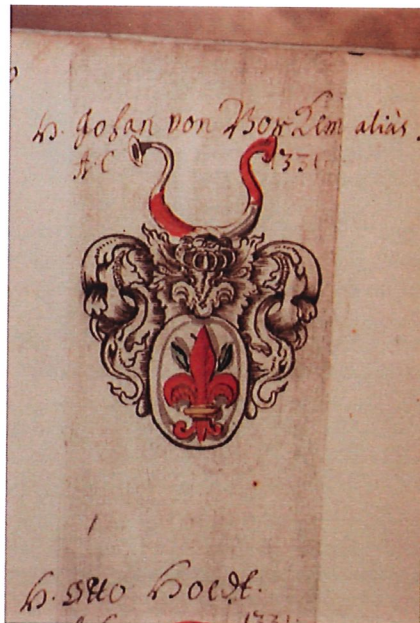 H. Johan von Borkem aliàs
A.C 1331
H. Otto Hoedt.
1331